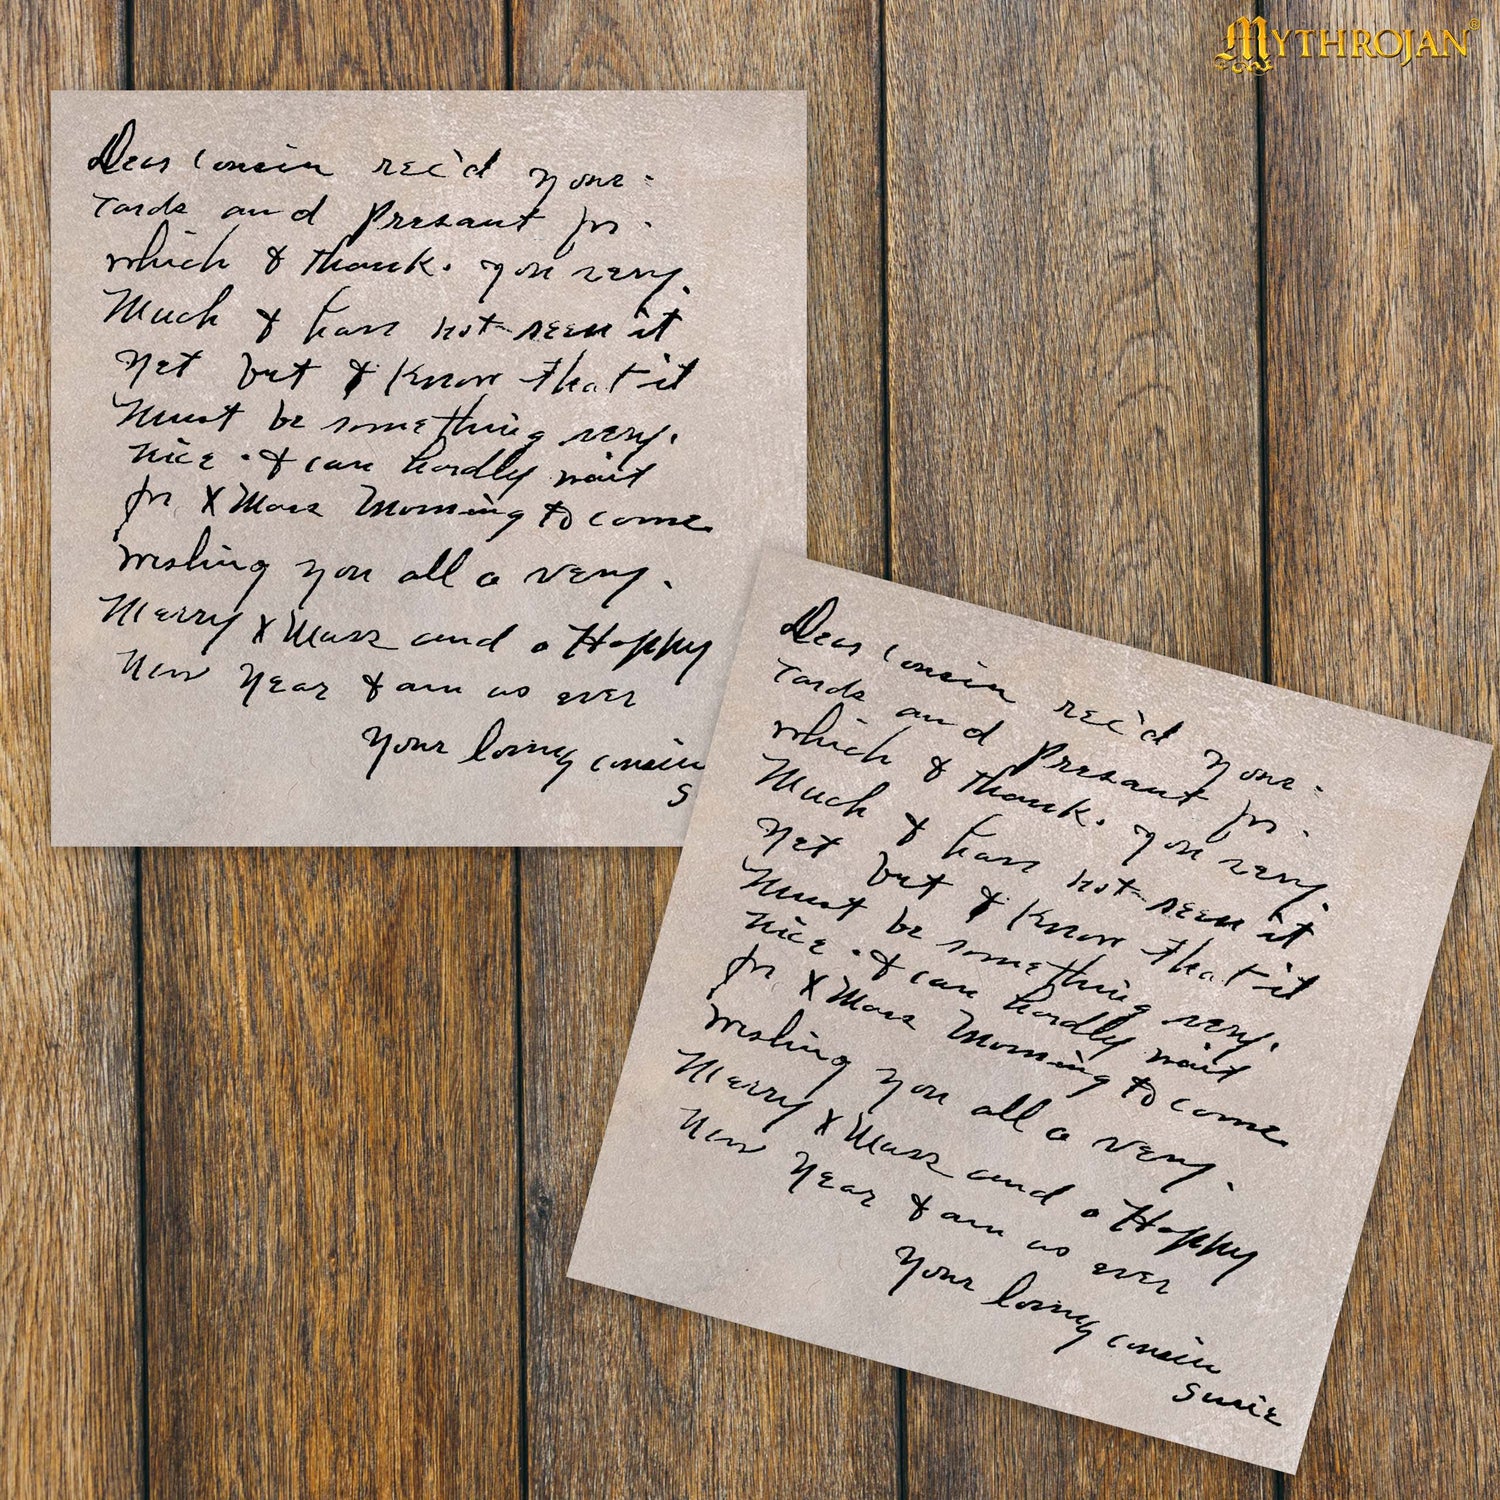 MYTHROJAN
Dear Cousin rec'd your
cards and Presant for
which I thank. you very.
Much I have not seen it
yet but I know that it
Must be something very.
nice. I can hardly wait
for XMass Morning to come
wishing you all a very.
Merry XMass and a Happy
New Year I am as ever
Your loving cousin
S
Dear Cousin rec'd your
cards and Presant for
which I thank. you very.
Much I have not seen it
yet but I know that it
Must be something very.
nice. I can hardly wait
for XMass Morning to come
wishing you all a very.
Merry XMass and a Happy
New Year I am as ever
Your loving cousin
Susie